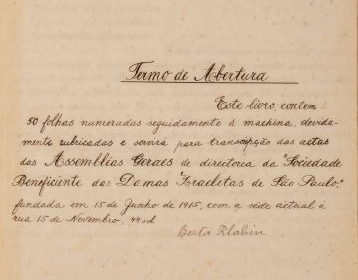 Termo de Abertura
Este livro, contem
50 folhas numeradas seguidamente á machina, devida-
mente rubricadas e servirá para transcripção das actas
das Assembléas Geraes de directoria da "Sociedade
Beneficiente das Damas Israelitas de São Paulo,"
fundada em 15 de Junho de 1915, com a séde actual á
rua 15 de Novembro, 44
Berta Klabin